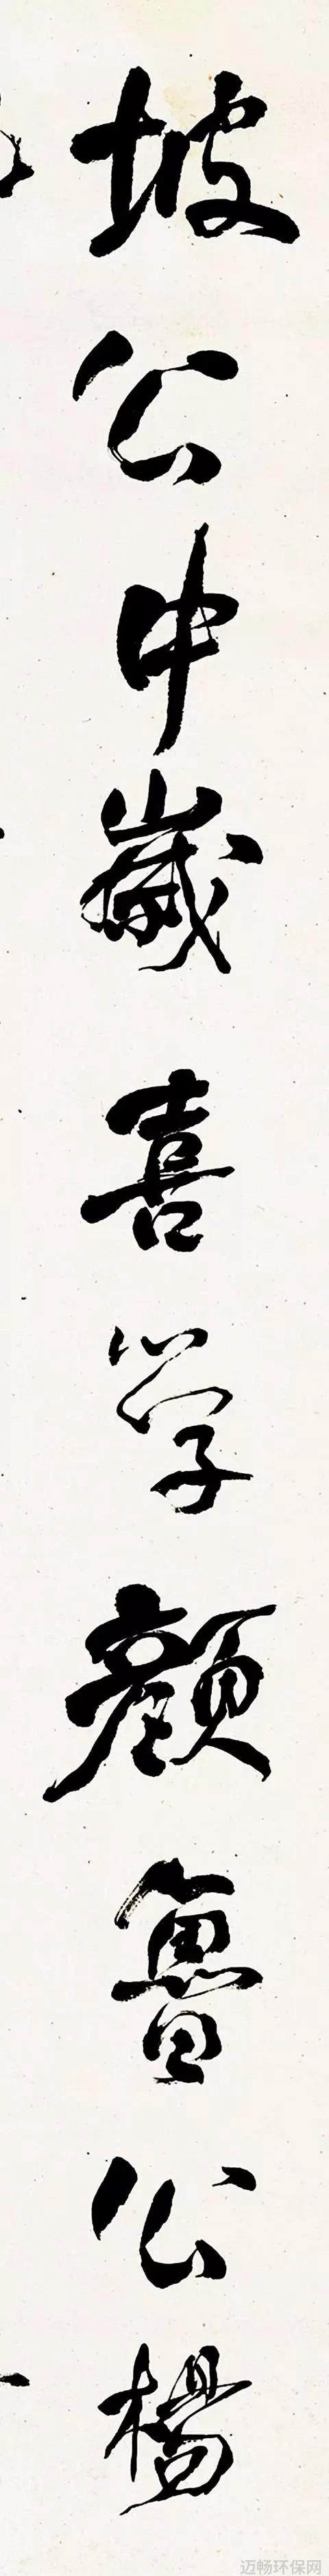 坡公中歲喜学顔魯公楊
迈畅环保网